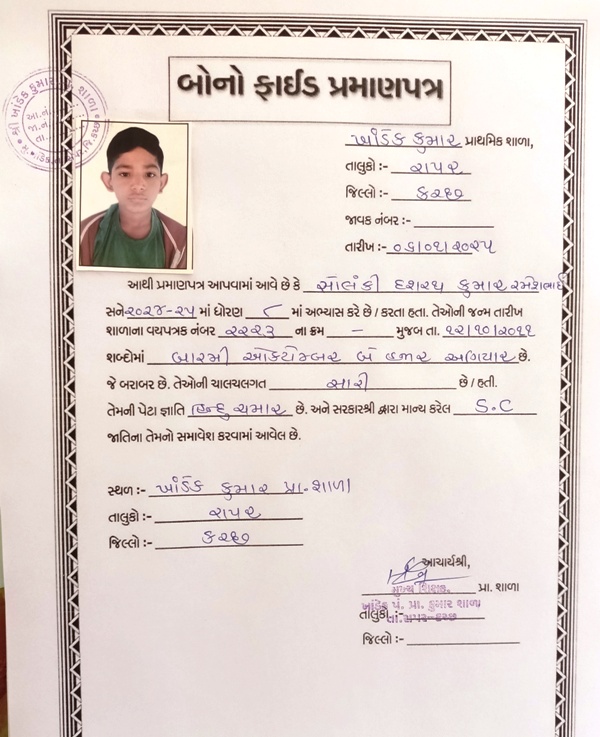 બોનો ફાઈડ પ્રમાણપત્ર
શ્રી ખાંડેક કુમાર શાળા
આ.નં.
જા.નં.
તા.
ખાંડેક કુમાર પ્રાથમિક શાળા,
તાલુકો :- રાપર
જિલ્લો :- કચ્છ
જાવક નંબર :-
તારીખ :- ૦૬/૦૧/૨૦૨૫
આથી પ્રમાણપત્ર આપવામાં આવે છે કે સોલંકી દશરથ કુમાર રમેશભાઈ
સને ૨૦૨૪-૨૫ માં ધોરણ ૮ માં અભ્યાસ કરે છે / કરતા હતા. તેઓની જન્મ તારીખ
શાળાના વયપત્રક નંબર ૨૨૨૩ ના ક્રમ - મુજબ તા. ૧૨/૧૦/૨૦૧૧
શબ્દોમાં બારમી ઓક્ટોમ્બર બે હજાર અગિયાર છે.
જે બરાબર છે. તેઓની ચાલચલગત સારી છે / હતી.
તેમની પેટા જ્ઞાતિ હિન્દુ ચમાર છે. અને સરકારશ્રી દ્વારા માન્ય કરેલ S.C
જાતિના તેમનો સમાવેશ કરવામાં આવેલ છે.
સ્થળ :- ખાંડેક કુમાર પ્રા. શાળા
તાલુકો :- રાપર
જિલ્લો :- કચ્છ
આચાર્યશ્રી,
મુખ્ય શિક્ષક
પ્રા. શાળા
ખાંડેક પં. પ્રા. કુમાર શાળા
તાલુકો :- તા.રાપર-કચ્છ
જિલ્લો :-